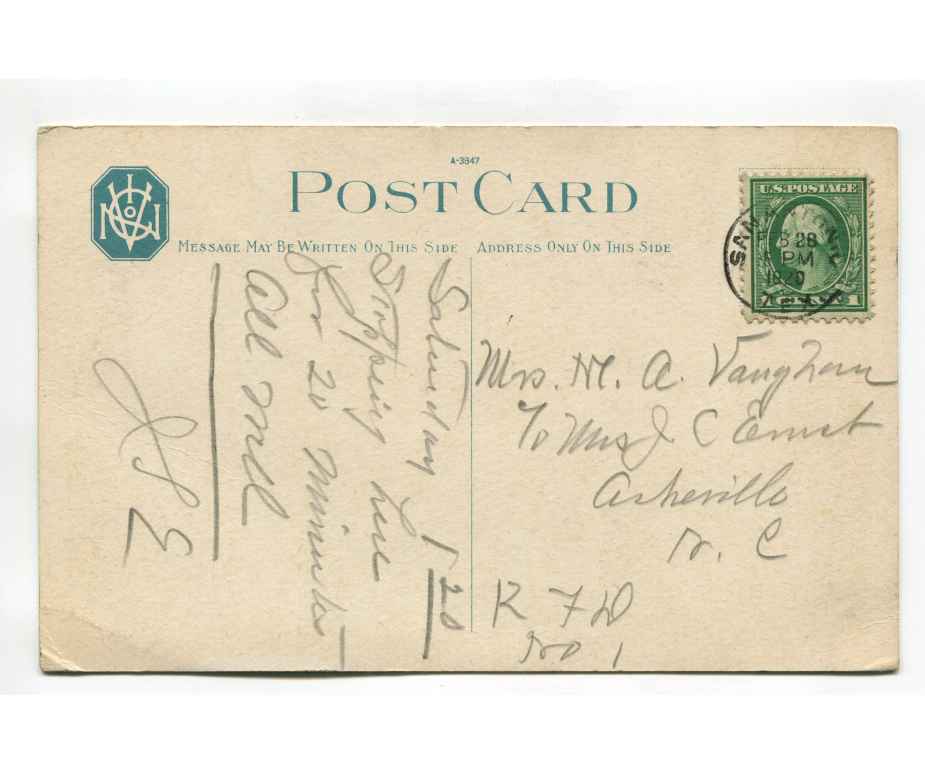 A-3847
POST CARD
MESSAGE MAY BE WRITTEN ON THIS SIDE
ADDRESS ONLY ON THIS SIDE
U.S. POSTAGE
SAN ANTONIO
28
PM
1920
TEX
1
Saturday 1 20
Stopping here
for 20 Minutes
All Well
J S E
Mrs. M. A. Vaughan
c/o Mrs J C Ernst
Asheville
N. C
R F D
No 1